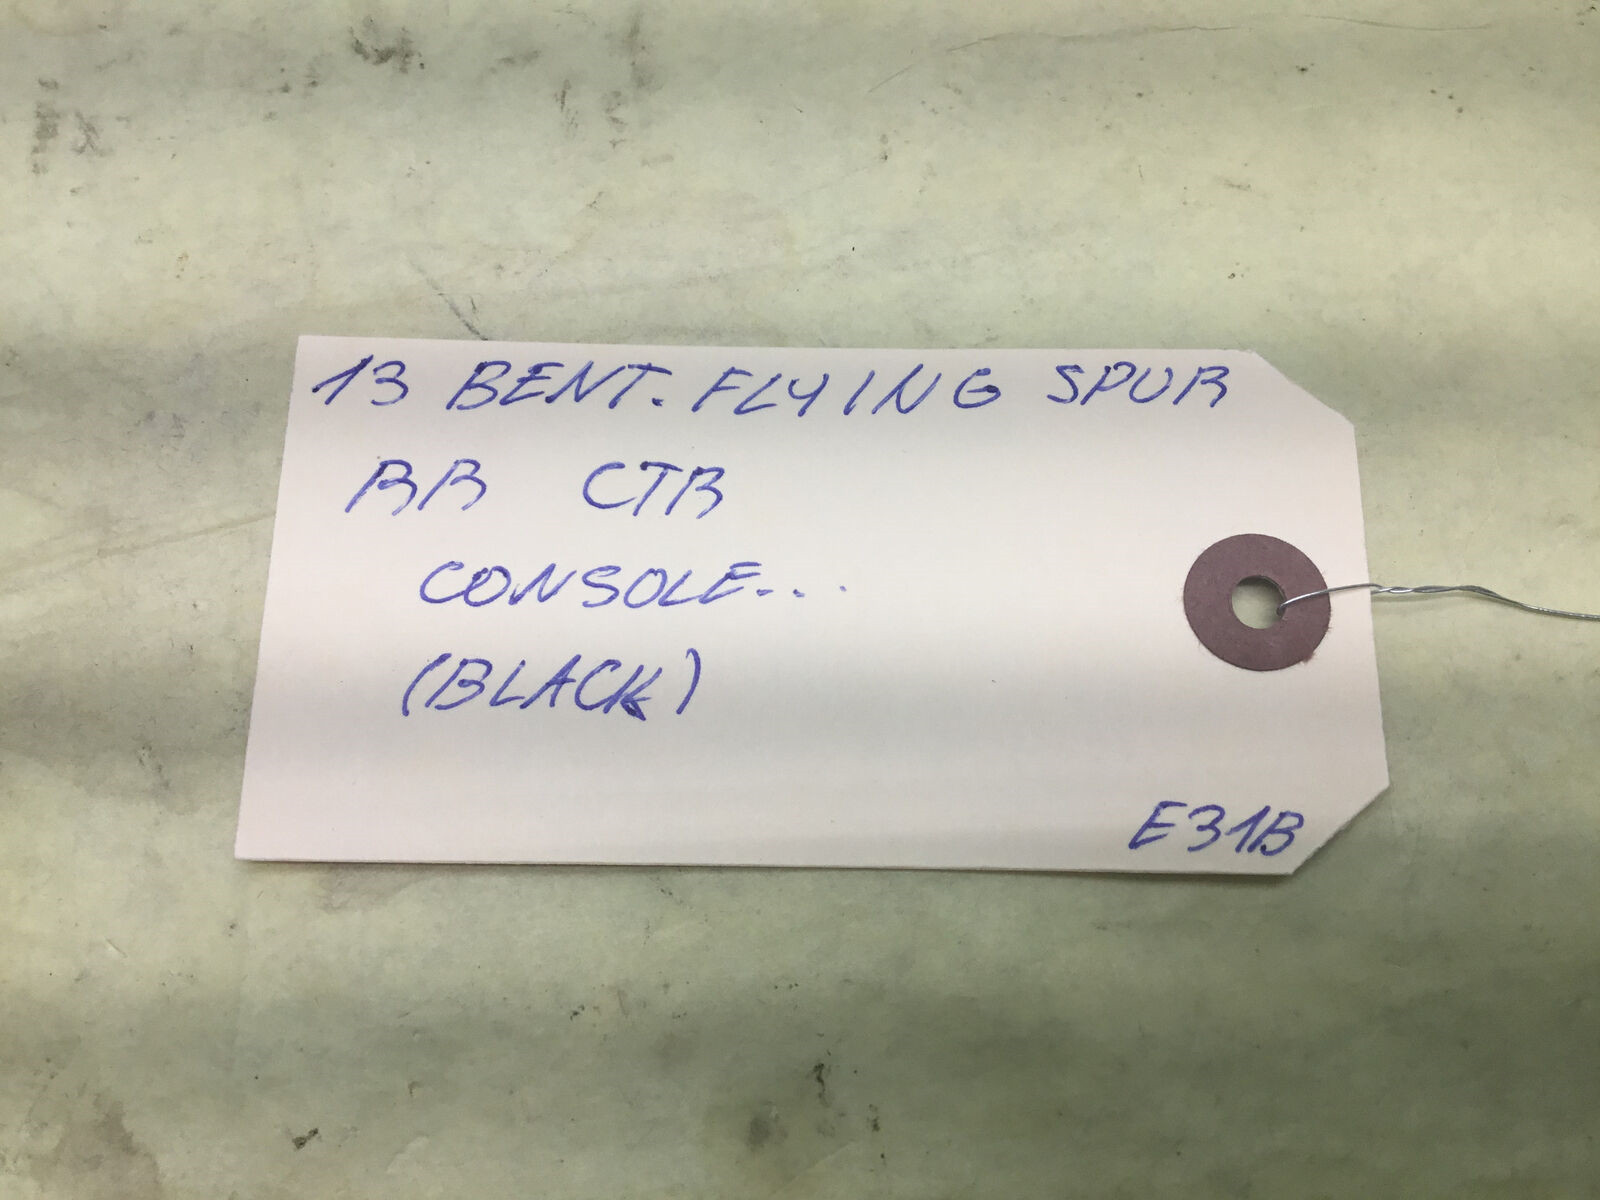 13 BENT. FLYING SPUR
RR CTR
CONSOLE...
(BLACK)
E31B